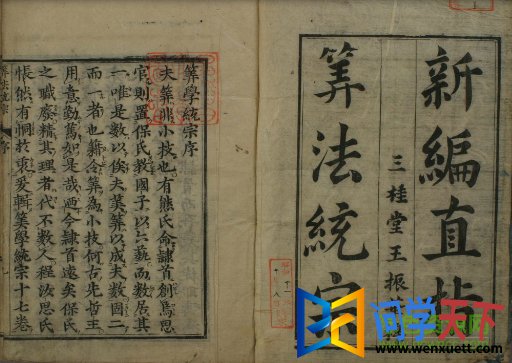 新編直指
三桂堂王振
筭法統宗
筭學統宗序
夫筭非小技也有熊氏命隷首創焉思
官則置保氏教國子以六藝而數居其
一唯是數以俟夫筭筭以成夫數固二
而一者也籍令筭為小技何古先哲王
用意勤篤如是哉廼今隷首遠矣保氏
之職廢精其理者代不數人程汝思氏
悵然有恫於衷爰輯筭學統宗十七卷
问学天下
www.wenxuett.com